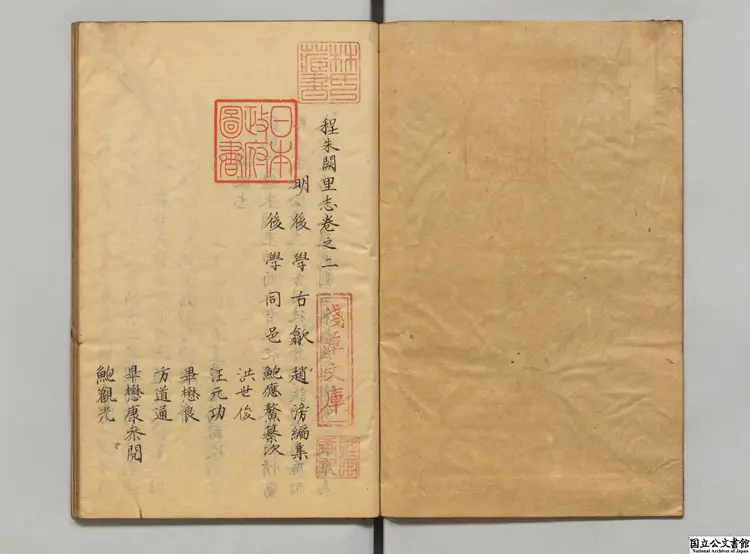 程朱闕里志卷之二
明後學古歙趙滂編集
後學同邑鮑應鰲纂次
洪世俊
汪元功
畢懋良
方道通
畢懋康參閱
鮑觀光
林氏藏書
日本政府圖書
淺草文庫
国立公文書館
National Archives of Japan